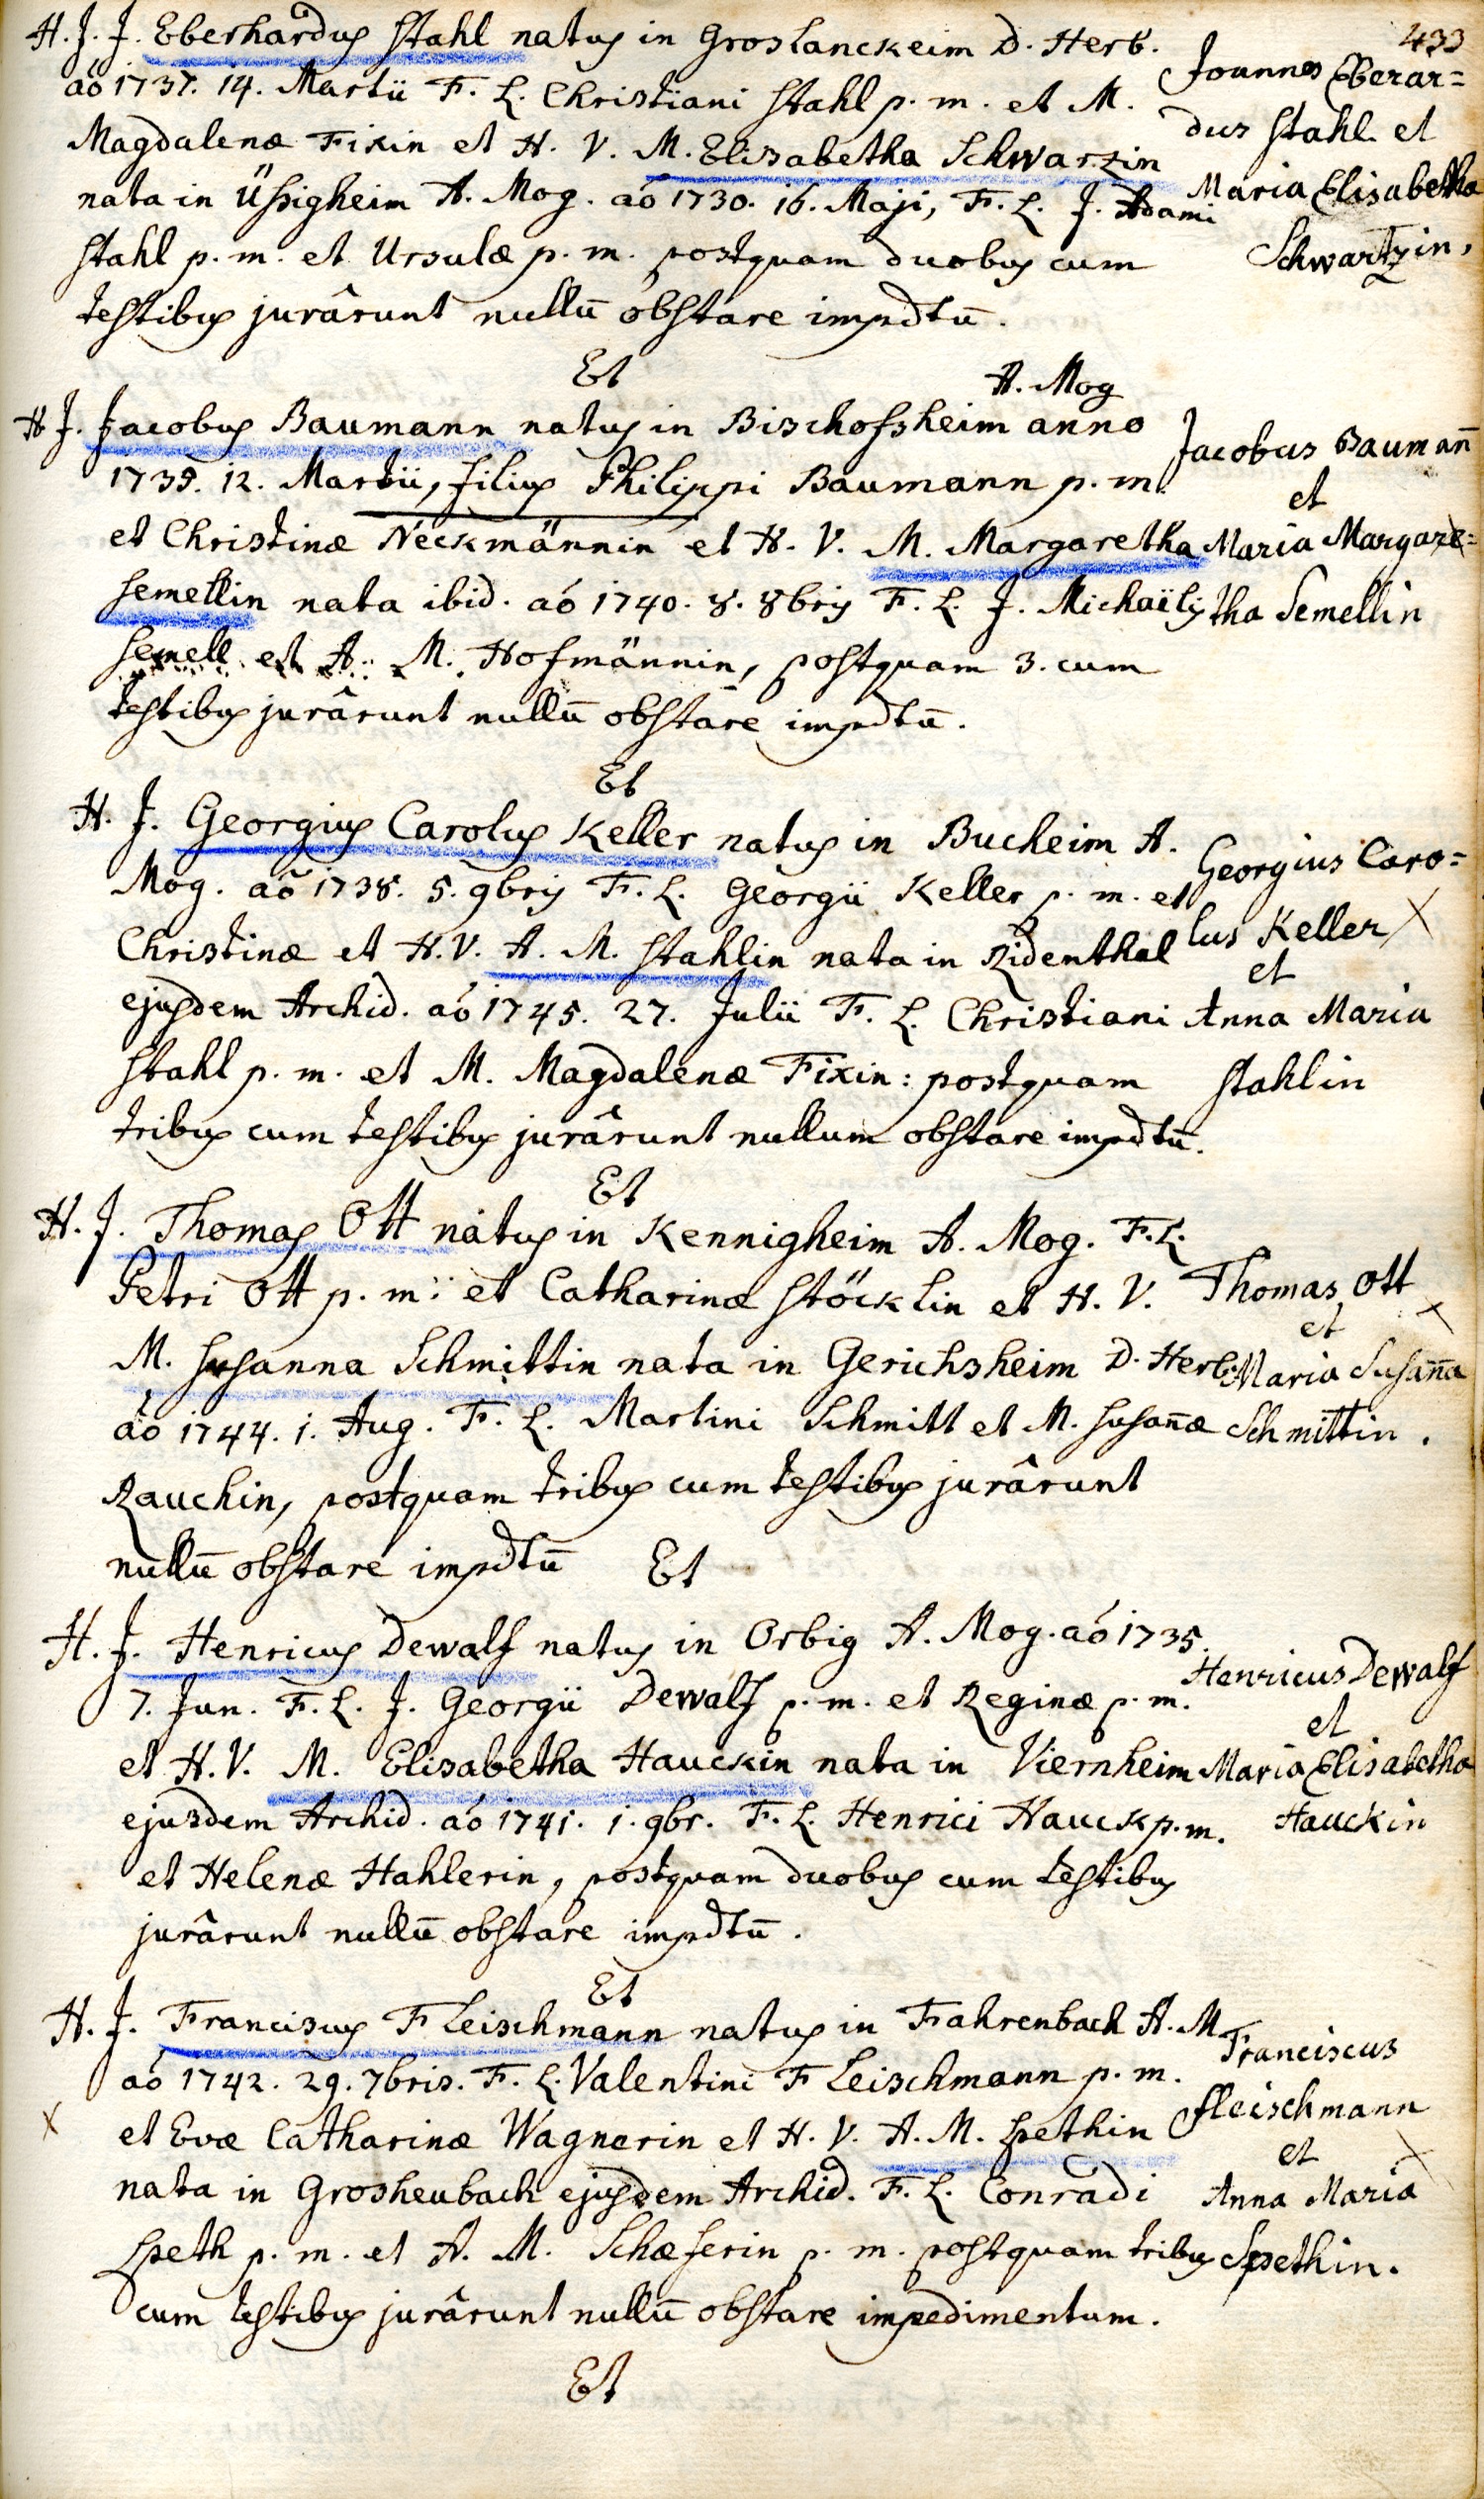 433
H. J. J. Eberhardus Stahl natus in Groslanckeim D. Herb.
aō 1737. 14. Martii F. L. Christiani Stahl p. m. et M.
Magdalenæ Fixin et H. V. M. Elisabetha Schwarzin
nata in Üßigheim A. Mog. aō 1730. 16. Maji, F. L. J. Adami
Stahl p. m. et Ursulæ p. m. postquam duobus cum
testibus jurârunt nullū obstare impdtū.
Joannes Eberar=
dus Stahl et
Maria Elisabetha
Schwartzin,
Et
A. Mog
H J. Jacobus Baumann natus in Bischofsheim anno
1739. 12. Martii, filius Philippi Baumann p. m.
et Christinæ Neckmännin et H. V. M. Margaretha
Semellin nata ibid. aō 1740. 8. 8bris F. L. J. Michaëlis
Semell et A. M. Hofmännin, postquam 3. cum
testibus jurârunt nullū obstare impdtū.
Jacobus Baumañ
et
Maria Margare=
tha Semellin
Et
H. J. Georgius Carolus Keller natus in Bucheim A.
Mog. aō 1738. 5. 9bris F. L. Georgii Keller p. m. et
Christinæ et H. V. A. M. Stahlin nata in Ridenthal
ejusdem Archid. aō 1745. 27. Julii F. L. Christiani
Stahl p. m. et M. Magdalenæ Fixin: postquam
tribus cum testibus jurârunt nullum obstare impdtū.
Georgius Caro=
lus Keller X
et
Anna Maria
Stahlin
Et
H. J. Thomas Ott natus in Kennigheim A. Mog. F. L.
Petri Ott p. m: et Catharinæ Stöcklin et H. V.
M. Susanna Schmittin nata in Gerichsheim D. Herb.
aō 1744. 1. Aug. F. L. Martini Schmitt et M. Susañæ
Rauchin, postquam tribus cum testibus jurârunt
nullū obstare impdtū Et
Thomas Ott
et X
Maria Susaña
Schmittin.
H. J. Henricus Dewalf natus in Orbig A. Mog. aō 1735.
7. Jun. F. L. J. Georgii Dewalf p. m. et Reginæ p. m.
et H. V. M. Elisabetha Hauckin nata in Viernheim
ejusdem Archid. aō 1741. 1. 9br. F. L. Henrici Hauck p. m.
et Helenæ Hahlerin, postquam duobus cum testibus
jurârunt nullū obstare impdtū.
Henricus Dewalf
et
Maria Elisabetha
Hauckin
Et
H. J. Franciscus Fleischmann natus in Fahrenbach A. M
aō 1742. 29. 7bris. F. L. Valentini Fleischmann p. m.
X et Evæ Catharinæ Wagnerin et H. V. A. M. Spethin
nata in Grosheubach ejusdem Archid. F. L. Conradi
Speth p. m. et A. M. Schæferin p. m. postquam tribus
cum testibus jurârunt nullū obstare impedimentum.
Franciscus
Fleischmann
et X
Anna Maria
Spethin.
Et